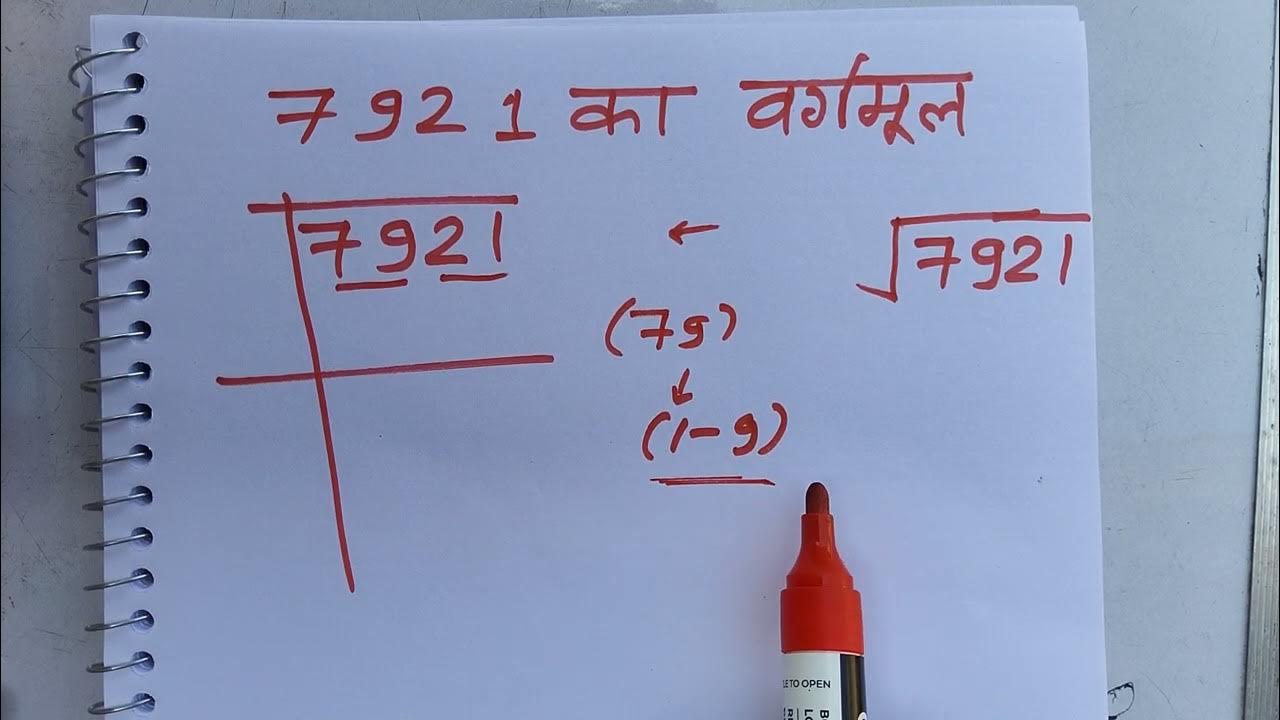 7921 का वर्गमूल
7921 ←
√7921
(79)
↓
(1-9)
LE TO OPEN